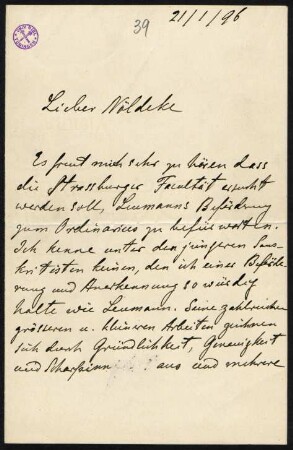 39
21/1/96
Lieber Nöldeke
Es freut mich sehr zu hören dass
die Strassburger Facultät ersucht
werden soll, Leumanns Beförderung
zum Ordinarius zu befürworten.
Ich kenne unter den jüngeren Sans-
kritisten keinen, den ich einer Beförde-
rung und Anerkennung so würdig
halte wie Leumann. Seine zahlreichen
grösseren u. kleineren Arbeiten zeichnen
sich durch Gründlichkeit, Genauigkeit
und Scharfsinn aus und mehrere